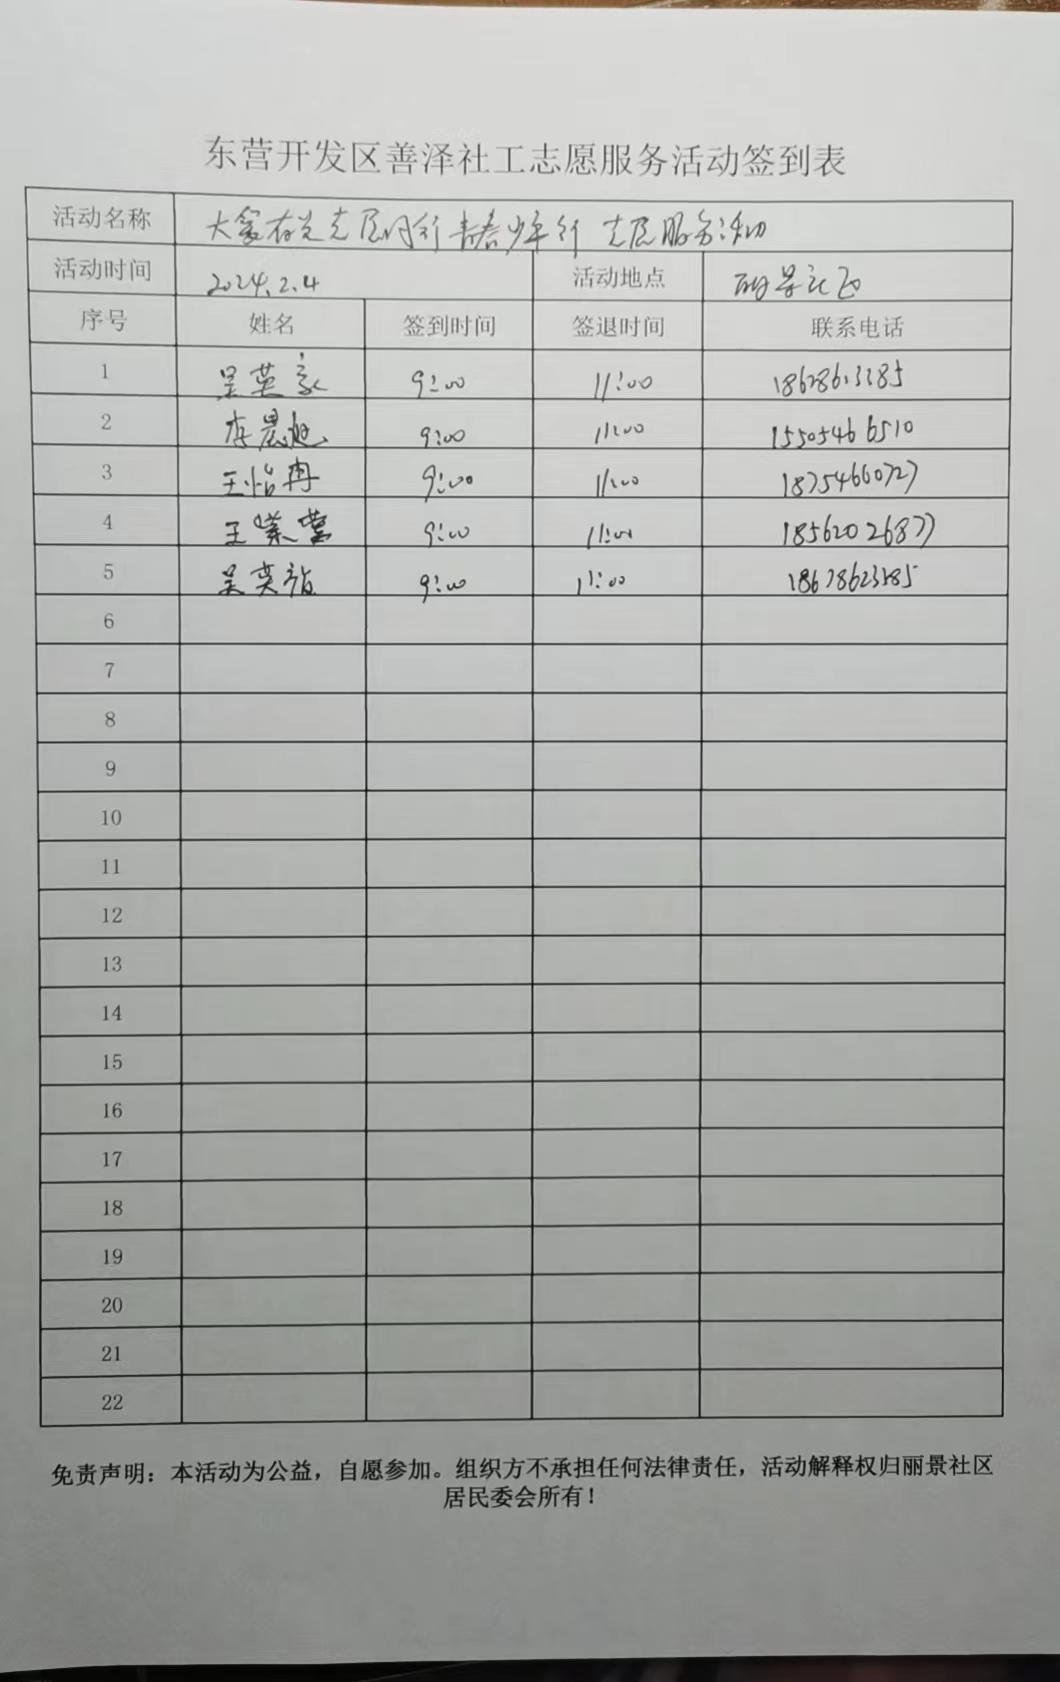 东营开发区善泽社工志愿服务活动签到表
活动名称 大爱有光志愿同行 青春少年行 志愿服务活动
活动时间 2024.2.4 活动地点 丽景社区
序号 姓名 签到时间 签退时间 联系电话
1 吴英豪 9:00 11:00
2 李晨旭 9:00 11:00 15505466510
3 王怡冉 9:00 11:00 18754660727
4 王紫萱 9:00 11:00 18562026877
5 吴英 9:00 11:00
6
7
8
9
10
11
12
13
14
15
16
17
18
19
20
21
22
免责声明：本活动为公益，自愿参加。组织方不承担任何法律责任，活动解释权归丽景社区
居民委会所有！